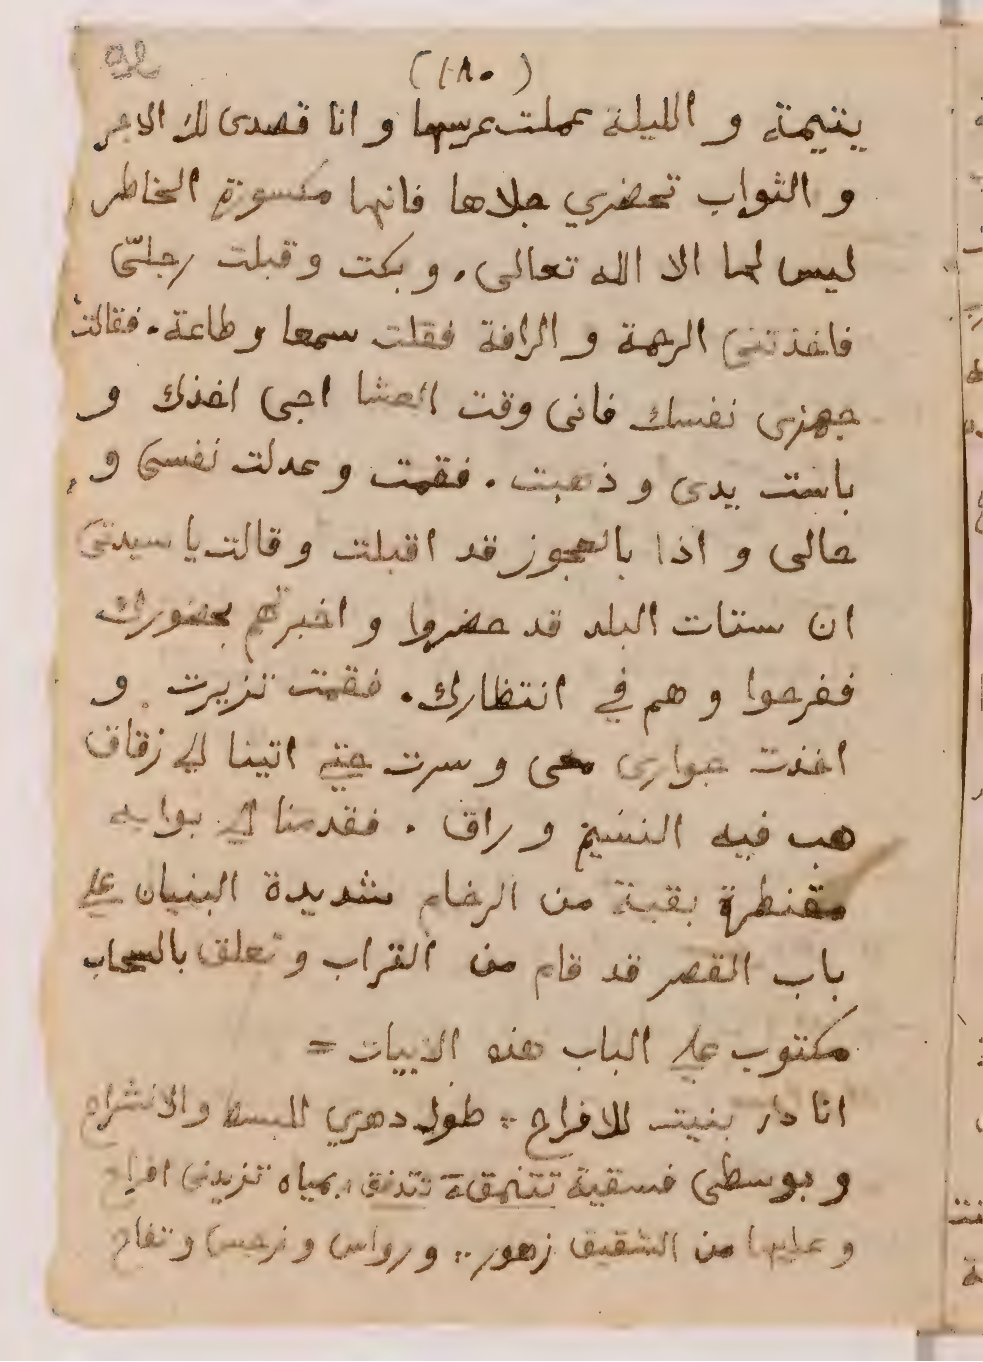 (١٨٠)
يتيمة و الليلة عملت عرسها و انا قصدى لك الاجر
و الثواب تحضري جلاها فانها مكسورة الخاطر
ليس لها الا الله تعالى. و بكت و قبلت رجلىّ
فاخذتنى الرحمة و الرافة فقلت سمعا و طاعة. فقالت
جهزى نفسك فانى وقت العشا اجى اخذك و
باست يدى و ذهبت. فقمت و عدلت نفسى و
حالى و اذا بالعجوز قد اقبلت و قالت يا سيدتى
ان ستات البلد قد حضروا و اخبرتهم بحضورك
ففرحوا و هم في انتظارك. فقمت تزيرت و
اخذت جوارى معى و سرت حتى اتينا الى زقاق
هب فيه النسيم و راق. فقدمنا الى بوابه
مقنطرة بقبة من الرخام شديدة البنيان على
باب القصر قد قام من التراب و تعلق بالسحاب
مكتوب على الباب هذه الابيات =
انا دار بنيت للافراح ∴ طول دهري للبسط والانشراح
و بوسطى فسقية تتدفق ∴ بمياه تزيدنى افراح
و عليها من الشقيق زهور ∴ و رواس و نرجس و تفاح